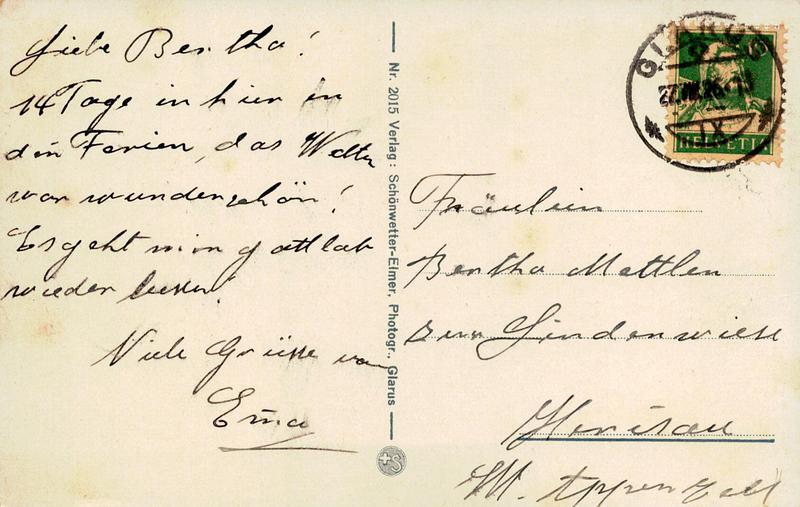 Liebe Bertha!
14 Tage in hier in
den Ferien, das Wetter
war wunderschön!
Es geht mir gottlob
wieder besser!
Viele Grüsse von
Erna
Nr. 2015 Verlag: Schönwetter-Elmer, Photogr., Glarus
S
GLARUS
IX
HELVETIA
Fräulein
Bertha Mettler
zur Lindenwiese
Herisau
Appenzell